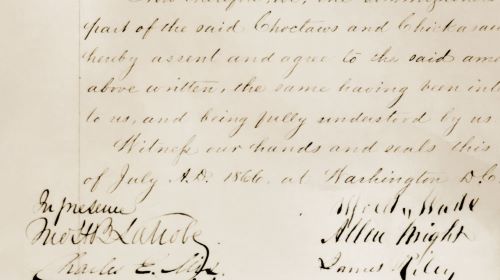 part of the said Choctaws and Chickasaw
hereby assent and agree to the said ame
above written, the same having been int
to us, and being fully understood by us
Witness our hands and seals this
of July A.D. 1866, at Washington D.C.
In presence
Jno H B Latrobe Alfred Wade
Charles E. Mix Allen Wright
James Riley